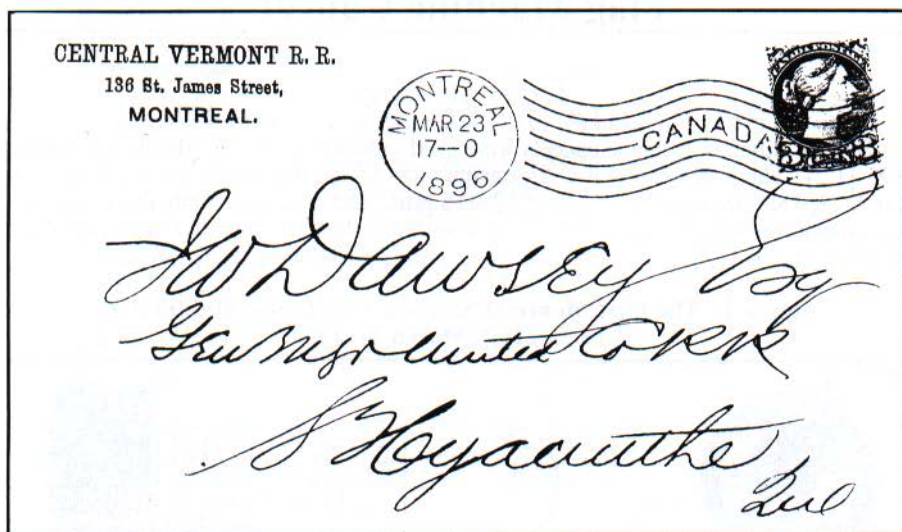 CENTRAL VERMONT R. R.
136 St. James Street,
MONTREAL.
MONTREAL
MAR 23
17--0
1896
CANADA
CANADA POSTAGE
3 CENTS 3
JW Dawsey Esq
Gen Mgr United Co RR
St Hyacinthe
Que